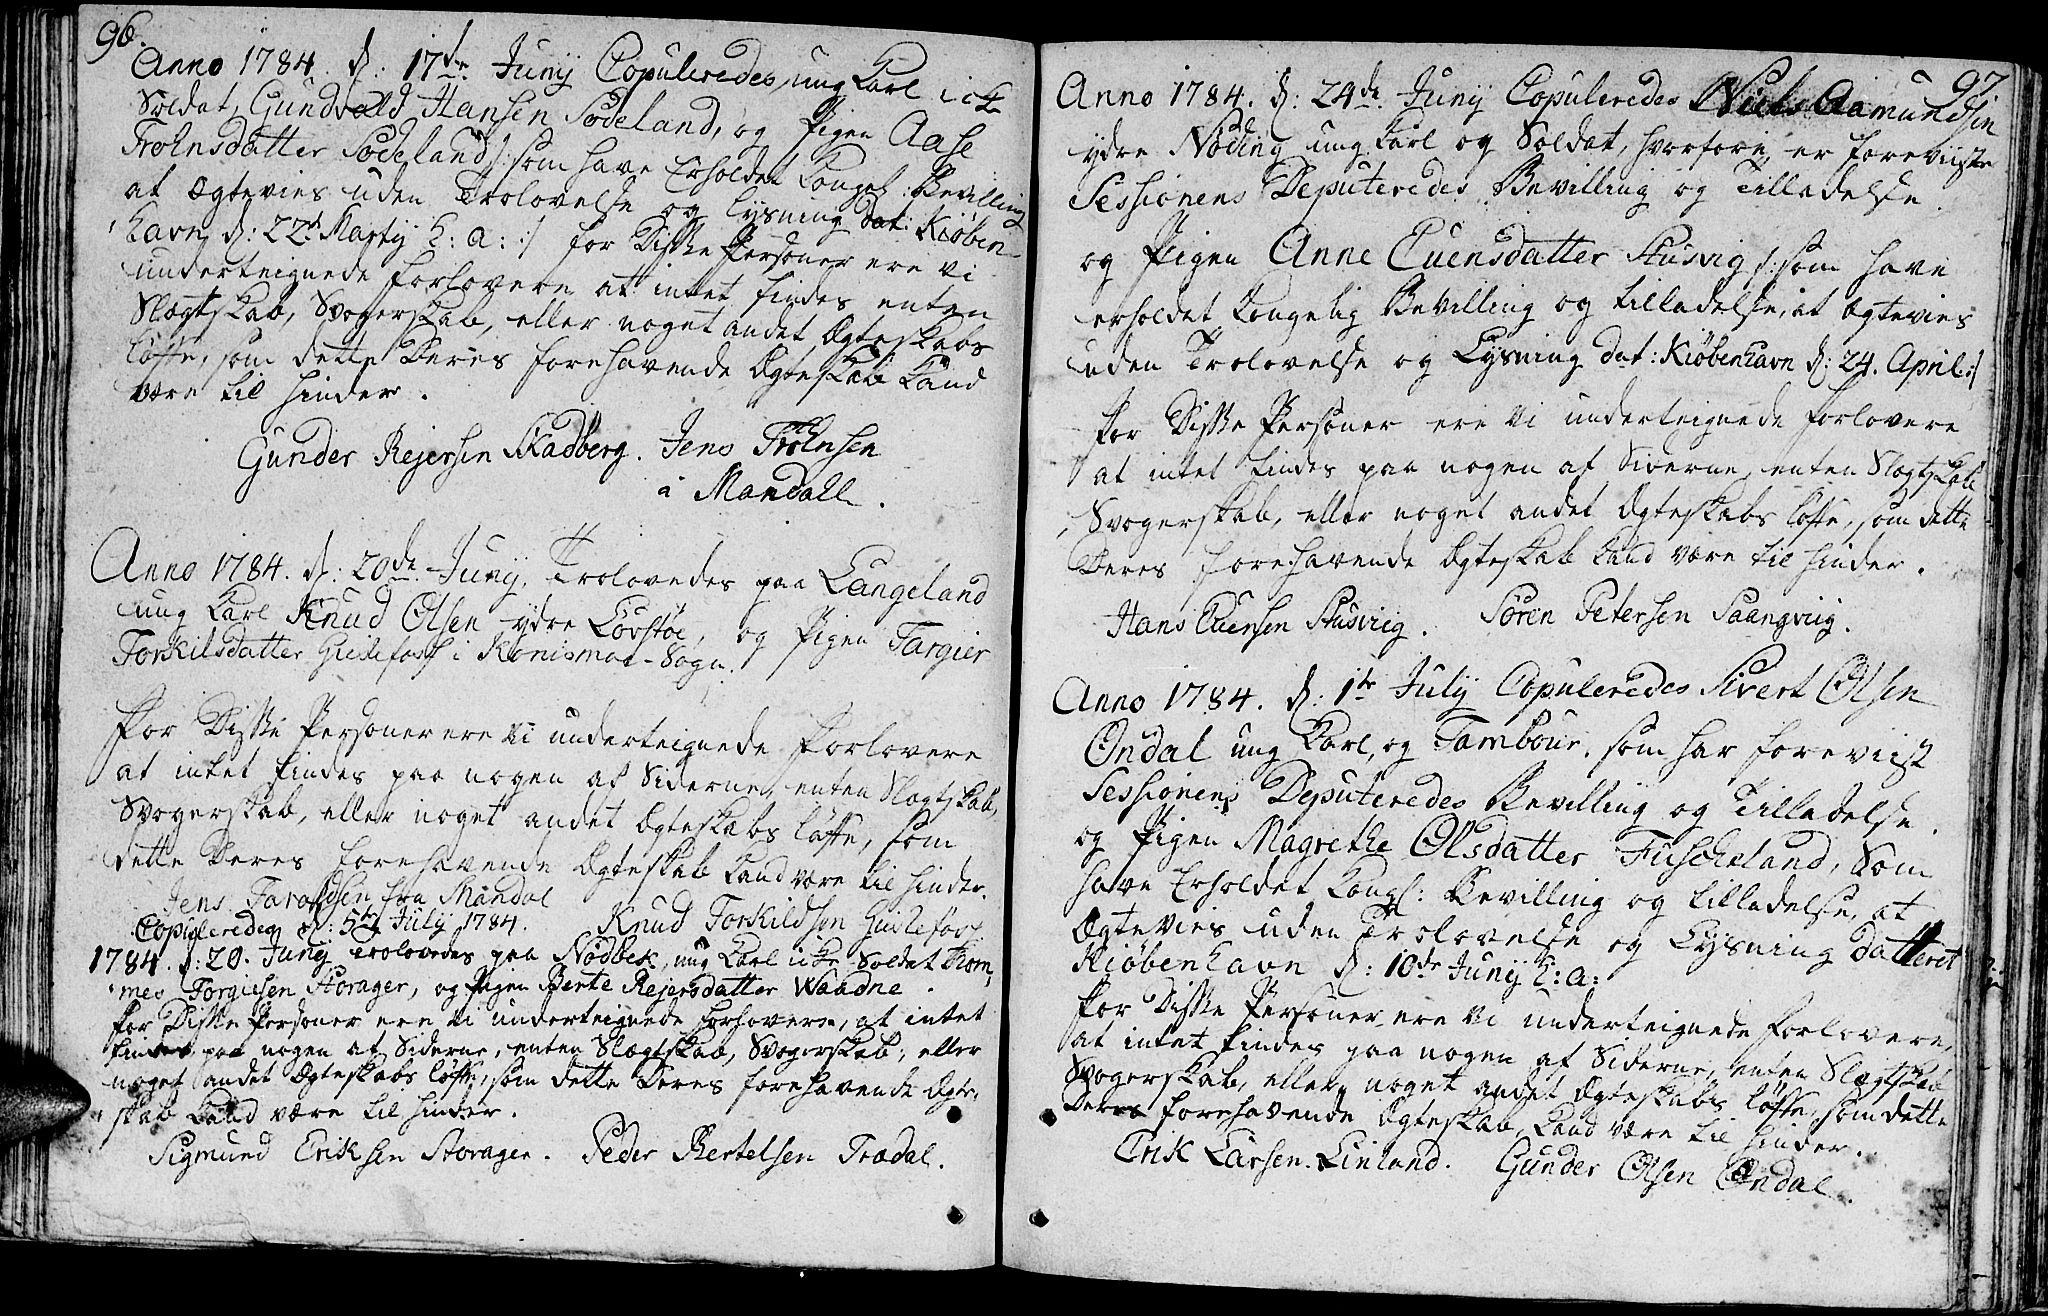 96.
Anno 1784. d: 17de Junÿ Copuleredes, ung Karl icke
Soldat, Gundvald Hansen Sødeland, og Pigen Aase
Frohnsdatter Sødeland /: som have Erholdet Kongel: Bevilling
at Ægtevies uden Trolovelse og Lysning dat: Kiøben-
havn d: 22de Martÿ h: a: :/ for Disse Personer ere vi
underteignede forlovere at intet findes enten
Slægtskab, Svogerskab, eller noget andet Ægteskabs
løfte, som dette Deres forehavende Ægteskab kand
være til hinder.
Gunder Rejersen Skadberg. Jens Frohnsen
a Mandall.
Anno 1784. d: 20de Junÿ, Trolovedes paa Langeland
ung Karl Knud Olsen ydre Løvstøe, og Pigen Targier
Torkilsdatter Gislefos i Konismoe-Sogn.
For Disse Personer ere vi underteignede Forlovere
at intet findes paa nogen af Siderne, enten Slægtskab,
Svogerskab, eller noget andet Ægteskabs løfte, som
dette Deres forehavende Ægteskab kand være til hinder.
Jens Taraldsen fra Mandal
Copuleredes d: 5te July 1784. Knud Torkildsen Gislefos
1784. d: 20. Junÿ trolovedes paa Nødbek, ung Karl icke Soldat Thom-
mes Torgiesen Storager, og Pigen Berte Rejersdatter Waadne.
for Disse Personer ere vi underteignede forlovere, at intet
findes paa nogen af Siderne, enten Slægtskab, Svogerskab, eller
noget andet Ægteskabs løfte, som dette Deres forehavende Ægte-
skab kand være til hinder.
Sigmund Eriksen Storager. Peder Bertelsen Trædal.
97
Anno 1784. d: 24de Junÿ Copuleredes Niels Aamundsen
ydre Nøding ung Karl og Soldat, hvorfore er foreviiste
Sessionens Deputeredes Bevilling og Tilladelse.
og Pigen Anne Euensdatter Stusvig /: som have
erholdet Kongelig Bevilling og tilladelse, at Ægtevies
uden Trolovelse og Lysning dat: Kiøbenhavn d: 24. April :/
for Disse Personer ere vi underteignede forlovere
at intet findes paa nogen af Siderne, enten Slægtskab
Svogerskab, eller noget andet Ægteskabs løfte, som dette
Deres forehavende Ægteskab kand være til hinder.
Hans Euensen Stusviig. Søren Petersen Saangviig.
Anno 1784. d: 1te July Copuleredes Sivert Olsen
Øndal ung Karl, og Tambour, som har foreviist
Sessionens Deputeredes Bevilling og Tilladelse.
og Pigen Magrethe Olsdatter Fuscheland, Som
have Erholdet Kongl: Bevilling og tilladelse, at
Ægtevies uden Trolovelse og Lysning datteret
Kiøbenhavn d: 10de Junÿ h: a:
for Disse Personer ere vi underteignede forlovere,
at intet findes paa nogen af Siderne, enten Slægtskab
Svogerskab, eller noget andet Ægteskabs løfte, som dette
Deres forehavende Ægteskab, kand være til hinder.
Erik Larsen Linland. Gunder Olsen Øndal.